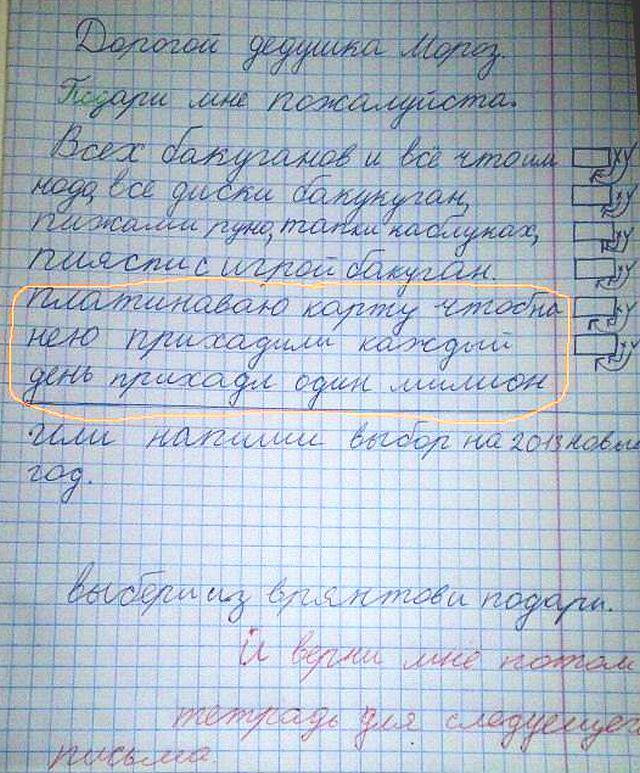 Дорогой дедушка Мороз.
Подари мне пожалуйста.
Всех бакуганов и всё что им
нодо, все диски бакукуган,
пижами руно, тапки каблуках,
пияспи с игрой бакуган.
платинаваю карту чтоб на
нею прихадили каждый
день прихадл один милион
Или напиши выбор на 2013 новы
год.
выбери из врянтов и подари.
И верни мне потом
тетрадь для следующего
письма.